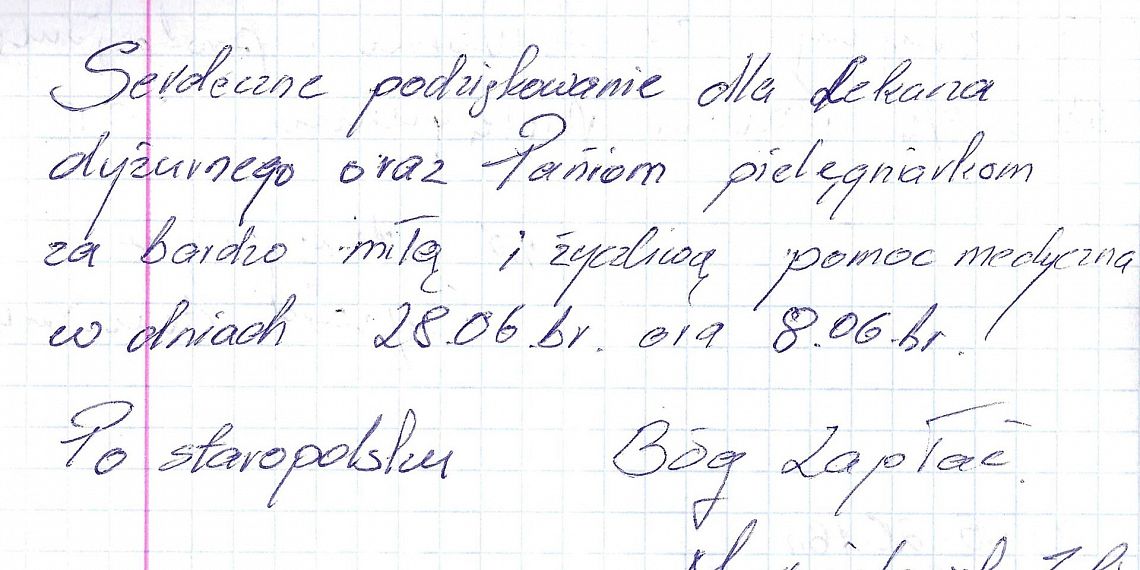 Serdeczne podziękowanie dla Lekarza
dyżurnego oraz Paniom pielęgniarkom
za bardzo miłą i życzliwą pomoc medyczna
w dniach 28.06 br. ora 8.06.br.
Po staropolsku Bóg Zapłać.